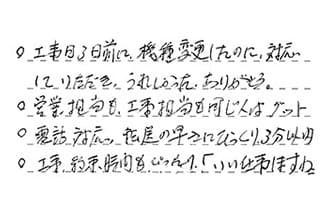 ○ 工事日3日前に、機種変更したのに、対応
していただき、うれしかった、ありがとう。
○ 営業担当も、工事担当も同じ人はグット
○ 電話対応の 折返の早さにびっくり、3分以内
○ 工事、約束時間もぴったり、「いい仕事ますね